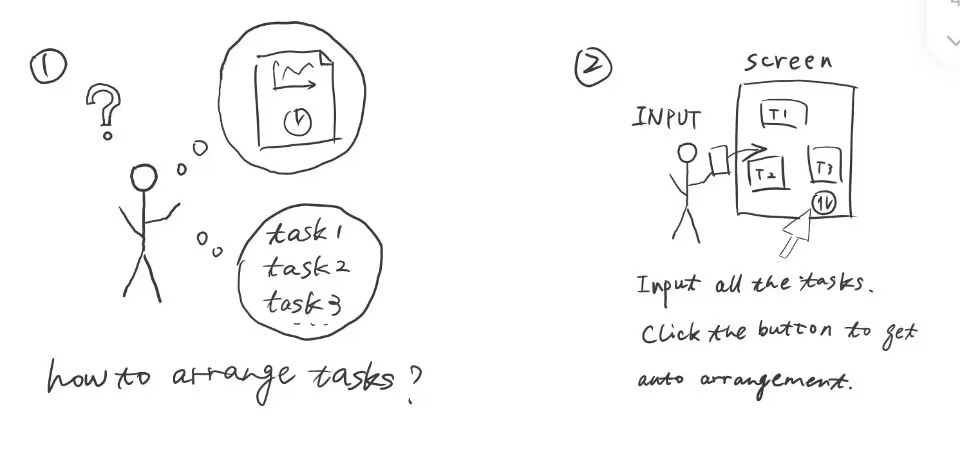 ①
?
task1
task2
task3
...
how to arrange tasks?
②
screen
INPUT
T1
T2
T3
Input all the tasks.
Click the button to get
auto arrangement.